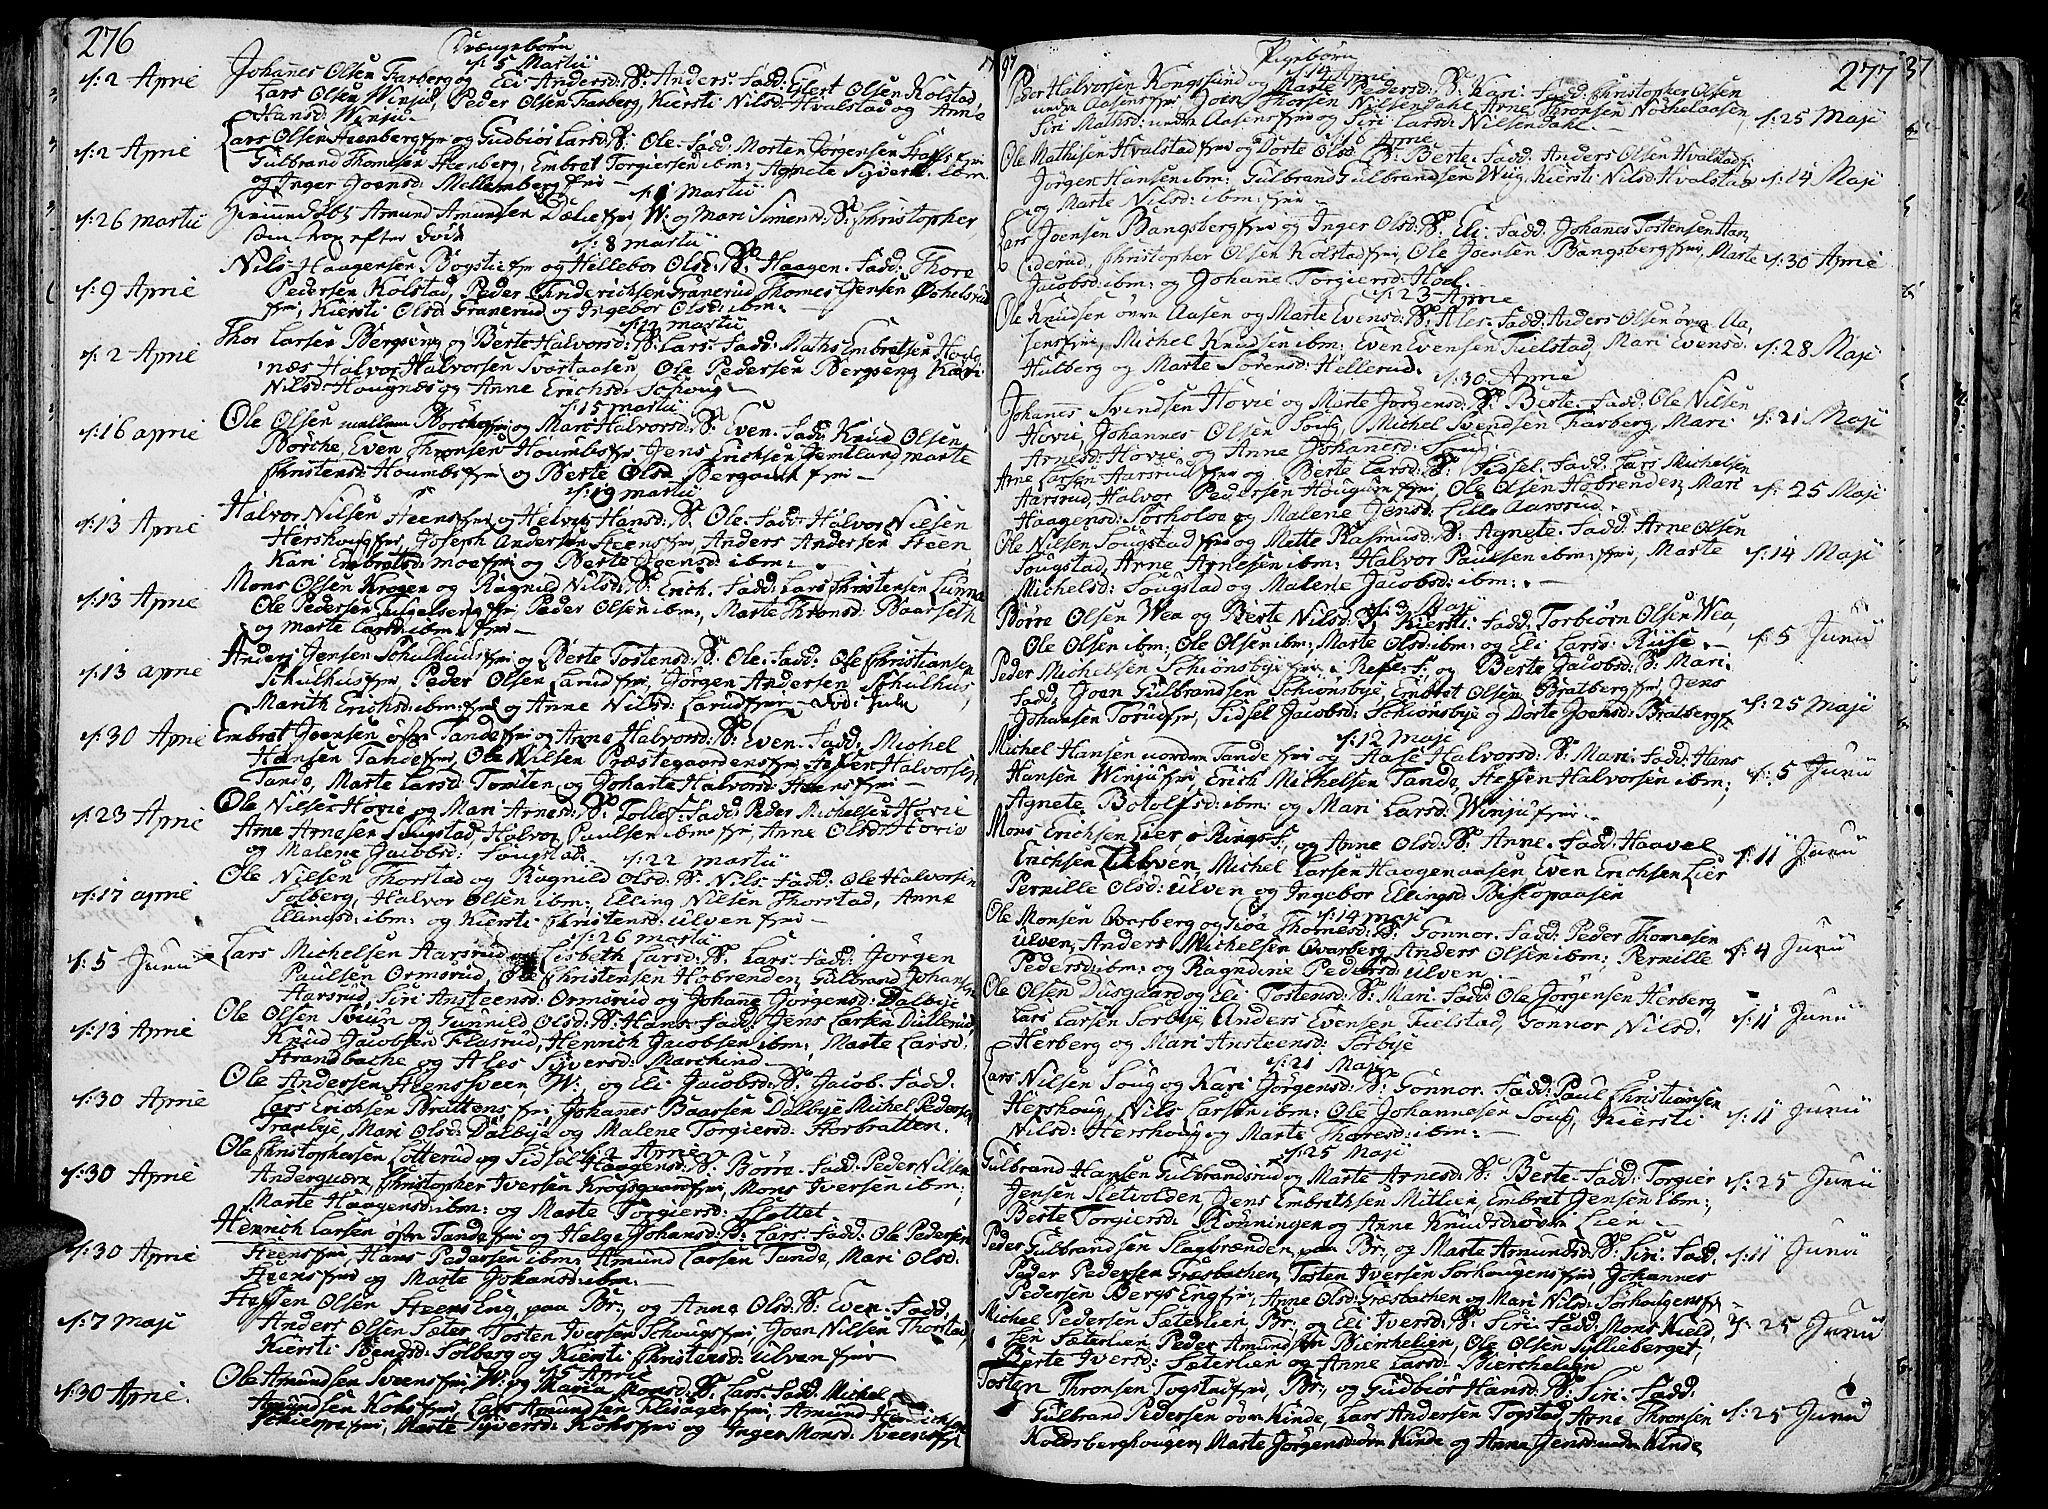 276
Drængebörn
d: 5 Martii
d: 2 April Johannes Olsen Farberg og Eli Andersd: S. Anders. Fadd: Elert Olsen Kolstad,
Lars Olsen Winju, Peder Olsen Farberg, Kiersti Nilsd: Hvalstad og Anne
Hansd: Winju.
d: 2 April Lars Olsen Steenberg fri og Gudbiör Larsd: S. Ole. Fadd: Morten Jörgensen
Gulbrand Thomesen Steenberg, Embret Torgiersen ibm: Agnete Syvertsd: ibm
og Inger Joensd: Mellemberg fri
d: martii
d: 26 martii Amund Amundsen Dælie fri, W: og Mari Simensd: S. Christopher
som efter död
d: 8 martii
Nils Haagensen Bogstie fri og Hellebor Olsd: S. Haagen. Fadd: Thore
d: 9 April Pedersen Kolstad, Peder Enderichsen Granerud Thomes Jensen
fri, Kiersti Olsd: Granerud og Ingebor Olsd: ibm:
d: 12 martii
Thor Larsen Bergseng og Berte Halvorsd: S. Lars. Fadd: Maths Embretsen
d: 2 April næs Halvor Halvorsen Svartaasen, Ole Pedersen Bergseng Kari
Nilsd: Hougnæs og Anne Erichsd: Schoug
d: 15 martii
d: 16 april Ole Olsen mellem Börche fri og Mari Halvorsd: S. Even. Fadd: Knud Olsen
Börche, Even Thronsen Houmb fri, Jens Erichsen Jemtland, marte
Christensd: Houmb fri og Berte Olsd: Bergound fri
d: 19 martii
Halvor Nilsen Steens fri og Helvig Hansd: S. Ole. Fadd: Halvor Nielsen
d: 13 April Hershoug fri, Joseph Andersen Steens fri, Anders Andersen Steen,
Kari Embretsd: moe fri og Berte Jensd: ibm:
Mons Olsen Krogen og Ragnild Nilsd: S. Erich. Fadd: Lars Christensen Lunna
d: 13 April Ole Pedersen fri Peder Olsen ibm, Marte Thronsd: Baarseth
og marte Larsd: ibm: fri
Anders Jensen Schulhuus fri og Berte Tostensd: S. Ole. Fadd: Ole Christiansen
d: 13 april Schulhus fri, Peder Olsen Larud fri, Jörgen Andersen Schulhus,
Marith Erichsd: ibm: fri og Anne Nilsd: Larud fri
d: 30 April Embret Joensen öfre Tande fri og Anne Halvorsd: S. Even. Fadd: Michel
Hansen Tande fri, Ole Nilsen Præstegaardens fri, Steffen Halvorsen
Tande, Marte Larsd: Tomten og Johanne Halvorsd: Steens fri
d: 23 April Ole Nilsen Hovie og Mari Arnesd: S. Tollef. Fadd: Peder Michelsen Hovie
Arne Arnesen Sougstad, Halvor Paulsen ibm fri, Anne Olsd: Hovie
og Malene Jacobsd: Sougstad
d: 22 martii
Ole Nilsen Thorstad og Ragnild Olsd: S. Nils. Fadd: Ole Halvorsen
d: 17 april Solberg, Halvor Olsen ibm: Elling Nilsen Thorstad, Anne
Ellingsd: ibm: og Kiersti Christensd: ulven fri
d: 26 martii
d: 5 Junii Lars Michelsen Aarsrud og Lisbeth Larsd: S. Lars. Fadd: Jörgen
Paulsen Ormsrud, Christensen Hobrenden, Gulbrand Johansen
Aarsrud, Siri Ansteensd: Ormsrud og Johane Jörgensd: Dalbye
Ole Olsen Sviun og Gunnild Olsd: S. Hans. Fadd: Jens Larsen Dullerud
d: 13 April Knud Jacobsen Flasrud, Henrich Jacobsen ibm: Marte Larsd:
Strandbache og Ales Syversd: Marchind
Ole Andersen Steensveen, W: og Eli Jacobsd: S. Jacob. Fadd:
d: 30 April Lars Erichsen Bruttens fri, Johannes Baarsen Dalbye Michel Pedersen
Tranbye, Mari Olsd: Dalbye og Malene Torgiersd: Storbratten.
d: 2 April
Ole Christophersen Lotterud og Sidsel Haagensd: S. Börre. Fadd: Peder Nilsen
d: 30 April Anderqværn, Christopher Iversen Krogsgaard fri, Mons Iversen ibm:
Marte Haagensd: ibm: og Marte Torgiersd: Slettet
Henrich Larsen öfre Tande fri og Helge Johansd: S. Lars. Fadd: Ole Pedersen
d: 30 April Steens fri, Hans Pedersen ibm: Amund Larsen Tande, Mari Olsd:
Steens fri og Marte Johansd: ibm:
Steffen Olsen Steens Eng, paa Br: og Anne Olsd: S. Even. Fadd:
d: 7 maji Anders Olsen Sæter, Tosten Iversen Schougs fri, Joen Nilsen Thorstad,
Kiersti Svendsd: Solberg og Kiersti Christensd: ulven fri
d: 5 April
d: 30 April. Ole Amundsen Sveens fri W: og Maria Monsd: S. Lars. Fadd: Michel
Amundsen Kohs fri, Lars Amundsen Filsager fri, Amund Henrichsen
fri, Marte Syversd: Kohs fri og Inger Monsd: Sveens fri
97
Pigebörn
277
37
d: 14 April
Peder Halvorsen Kongslund og Marte Pedersd: S. Kari. Fadd: Christopher Olsen
unden Aasens fri Joen Thorsen Nilsendahl, Arne Thronsen Nöchelaasen,
Siri Mathsd: unden Aasens fri og Siri Larsd: Nilsendahl. d: 25 Maji
d: 16 Aprie
Ole Mathisen Hvalstad fri og Dorte Olsd: S. Berte. Fadd: Anders Olsen Hvalstad f:
Jörgen Hansen ibm: Gulbrand Gulbrandsen Wiig, Kiersti Nilsd: Hvalstad d: 14 Maji
og Marte Nilsd: ibm: fri
Lars Joensen Bangsberg fri og Inger Olsd: S. Eli. Fadd: Johannes Tostensen Han,
derud, Christopher Olsen Kolstad fri, Ole Joensen Bangsberg fri, Marte d: 30 April
Jacobsd: ibm: og Johanne Torgiersd: Hoel.
d: 23 Aprie
Ole Knudsen övre Aasen og Marte Evensd: S. Ales. Fadd: Anders Olsen övre Aa,
sens fri, Michel Knudsen ibm: Even Evensen Fielstad, Mari Evensd: d: 28 Maji
Hulberg og Marte Sörensd: Hellerud.
d: 30 Aprie
Johannes Svendsen Hovie og Marte Jörgensd: S. Berte. Fadd: Ole Nilsen
Hovie, Johannes Olsen Soug, Michel Svendsen Farberg, Mari d: 21 Maji
Arnesd: Hovie, og Anne Johansd: Soug
Arne Larsen Aarsrud fri og Berte Larsd: S. Sidsel. Fadd: Lars Michelsen
Aarsrud, Halvor Pedersen Hougum fri, Ole Olsen Hobrenden, Mari d: 25 Maji
Haagensd: Sörholoe og Malene Jensd: Lille Aarsrud.
Ole Nilsen Sougstad fri og Mette Rasmusd: S. Agnete. Fadd: Arne Olsen
Sougstad, Arne Arnesen ibm: Halvor Paulsen ibm: fri, Marte d: 14 Maji
Michelsd: Sougstad og Malene Jacobsd: ibm:
d: 3 Maji
Börre Olsen Wea og Berte Nilsd: S. Kiersti. Fadd: Torbiörn Olsen Wea,
Ole Olsen ibm: Ole Olsen ibm: Marte Olsd: ibm: og Eli Larsd: Riise d: 5 Junii
Peder Michelsen Schiönsbye fri og Berte Jacobsd: S. Mari.
Fadd: Joen Gulbrandsen Schiönsbye, Embret Olsen Bratberg fri, Jens
Johansen Torud fri, Sidsel Jacobsd: Schiönsbye og Dorte Joensd: Bratberg fr d: 25 Maji
d: 12 Maji
Michel Hansen norden Tande fri og Aase Halvorsd: S. Mari. Fadd: Hans
Hansen Winju fri, Erich Michelsen Tande, Steffen Halvorsen ibm: d: 5 Junii
Agnete Botolfsd: ibm: og Mari Larsd: Winju fri
Mons Erichsen Lier og Anne Olsd: S. Anne. Fadd: Haavel
Erichsen Ulven, Michel Larsen Haagenaasen, Even Erichsen Lier d: 11 Junii
Pernille Olsd: ulven og Ingebor Ellingsd: Biskopaasen
d: 14 maji
Ole Monsen Overberg og Thomesd: S. Gonnor. Fadd: Peder Thomesen
ulven, Anders Michelsen Overberg, Anders Olsen ibm: Pernille d: 4 Junii
Pedersd: ibm: og Ragndine Pedersd: ulven
Ole Olsen Dusgaard og Eli Tostensd: S. Mari. Fadd: Ole Jörgensen Herberg
Lars Larsen Sorbye, Anders Evensen Fielstad, Gonnor Nilsd: d: 11 Junii
Herberg og Mari Ansteensd: Sorbye
d: 21 Maji
Lars Nilsen Soug og Kari Jörgensd: S. Gonnor. Fadd: Paul Christiansen
Hershoug, Nils Larsen ibm: Ole Johannesen Soug, Kiersti d: 11 Junii
Nilsd: Hershoug og Marte Thoresd: ibm:
d: 25 Maji
Gulbrand Hansen Gulbrandsrud og Marte Arnesd: S. Berte. Fadd: Torgier
Jensen Sletvolden, Jens Embretsen Mitlien, Embret Jensen ibm: d: 25 Junii
Berte Torgiersd: Rönningen og Anne Knudsd: övre Lien
Peder Gulbrandsen Slagbrænden, paa Br: og Marte Amundsd: S. Siri. Fadd: d: 11 Junii
Peder Pedersen Græsbachen, Tosten Iversen Sörhougens fri, Johannes
Pedersen Bergs Eng fri, Anne Olsd: Græsbachen og Mari Nilsd: Sörhougens fr
Michel Pedersen Sæterlien Br: og Eli Iversd: S. Siri. Fadd: Mons Kield,
sen Sæterlien, Peder Amundsen Bierchelien, Ole Olsen Syllieberget, d: 25 Junii
Berte Iversd: Sæterlien og Anne Larsd: Bierchelien
Tosten Thronsen Togstad fri, Br: og Gudbiör Hansd: S. Siri. Fadd.
Gulbrand Pedersen övre Kinde, Lars Andersen Togstad, Arne Thronsen d: 25 Junii
Koldsberghougen, Marte Jörgensd: övre Kinde og Anne Jensd: unden Kinde